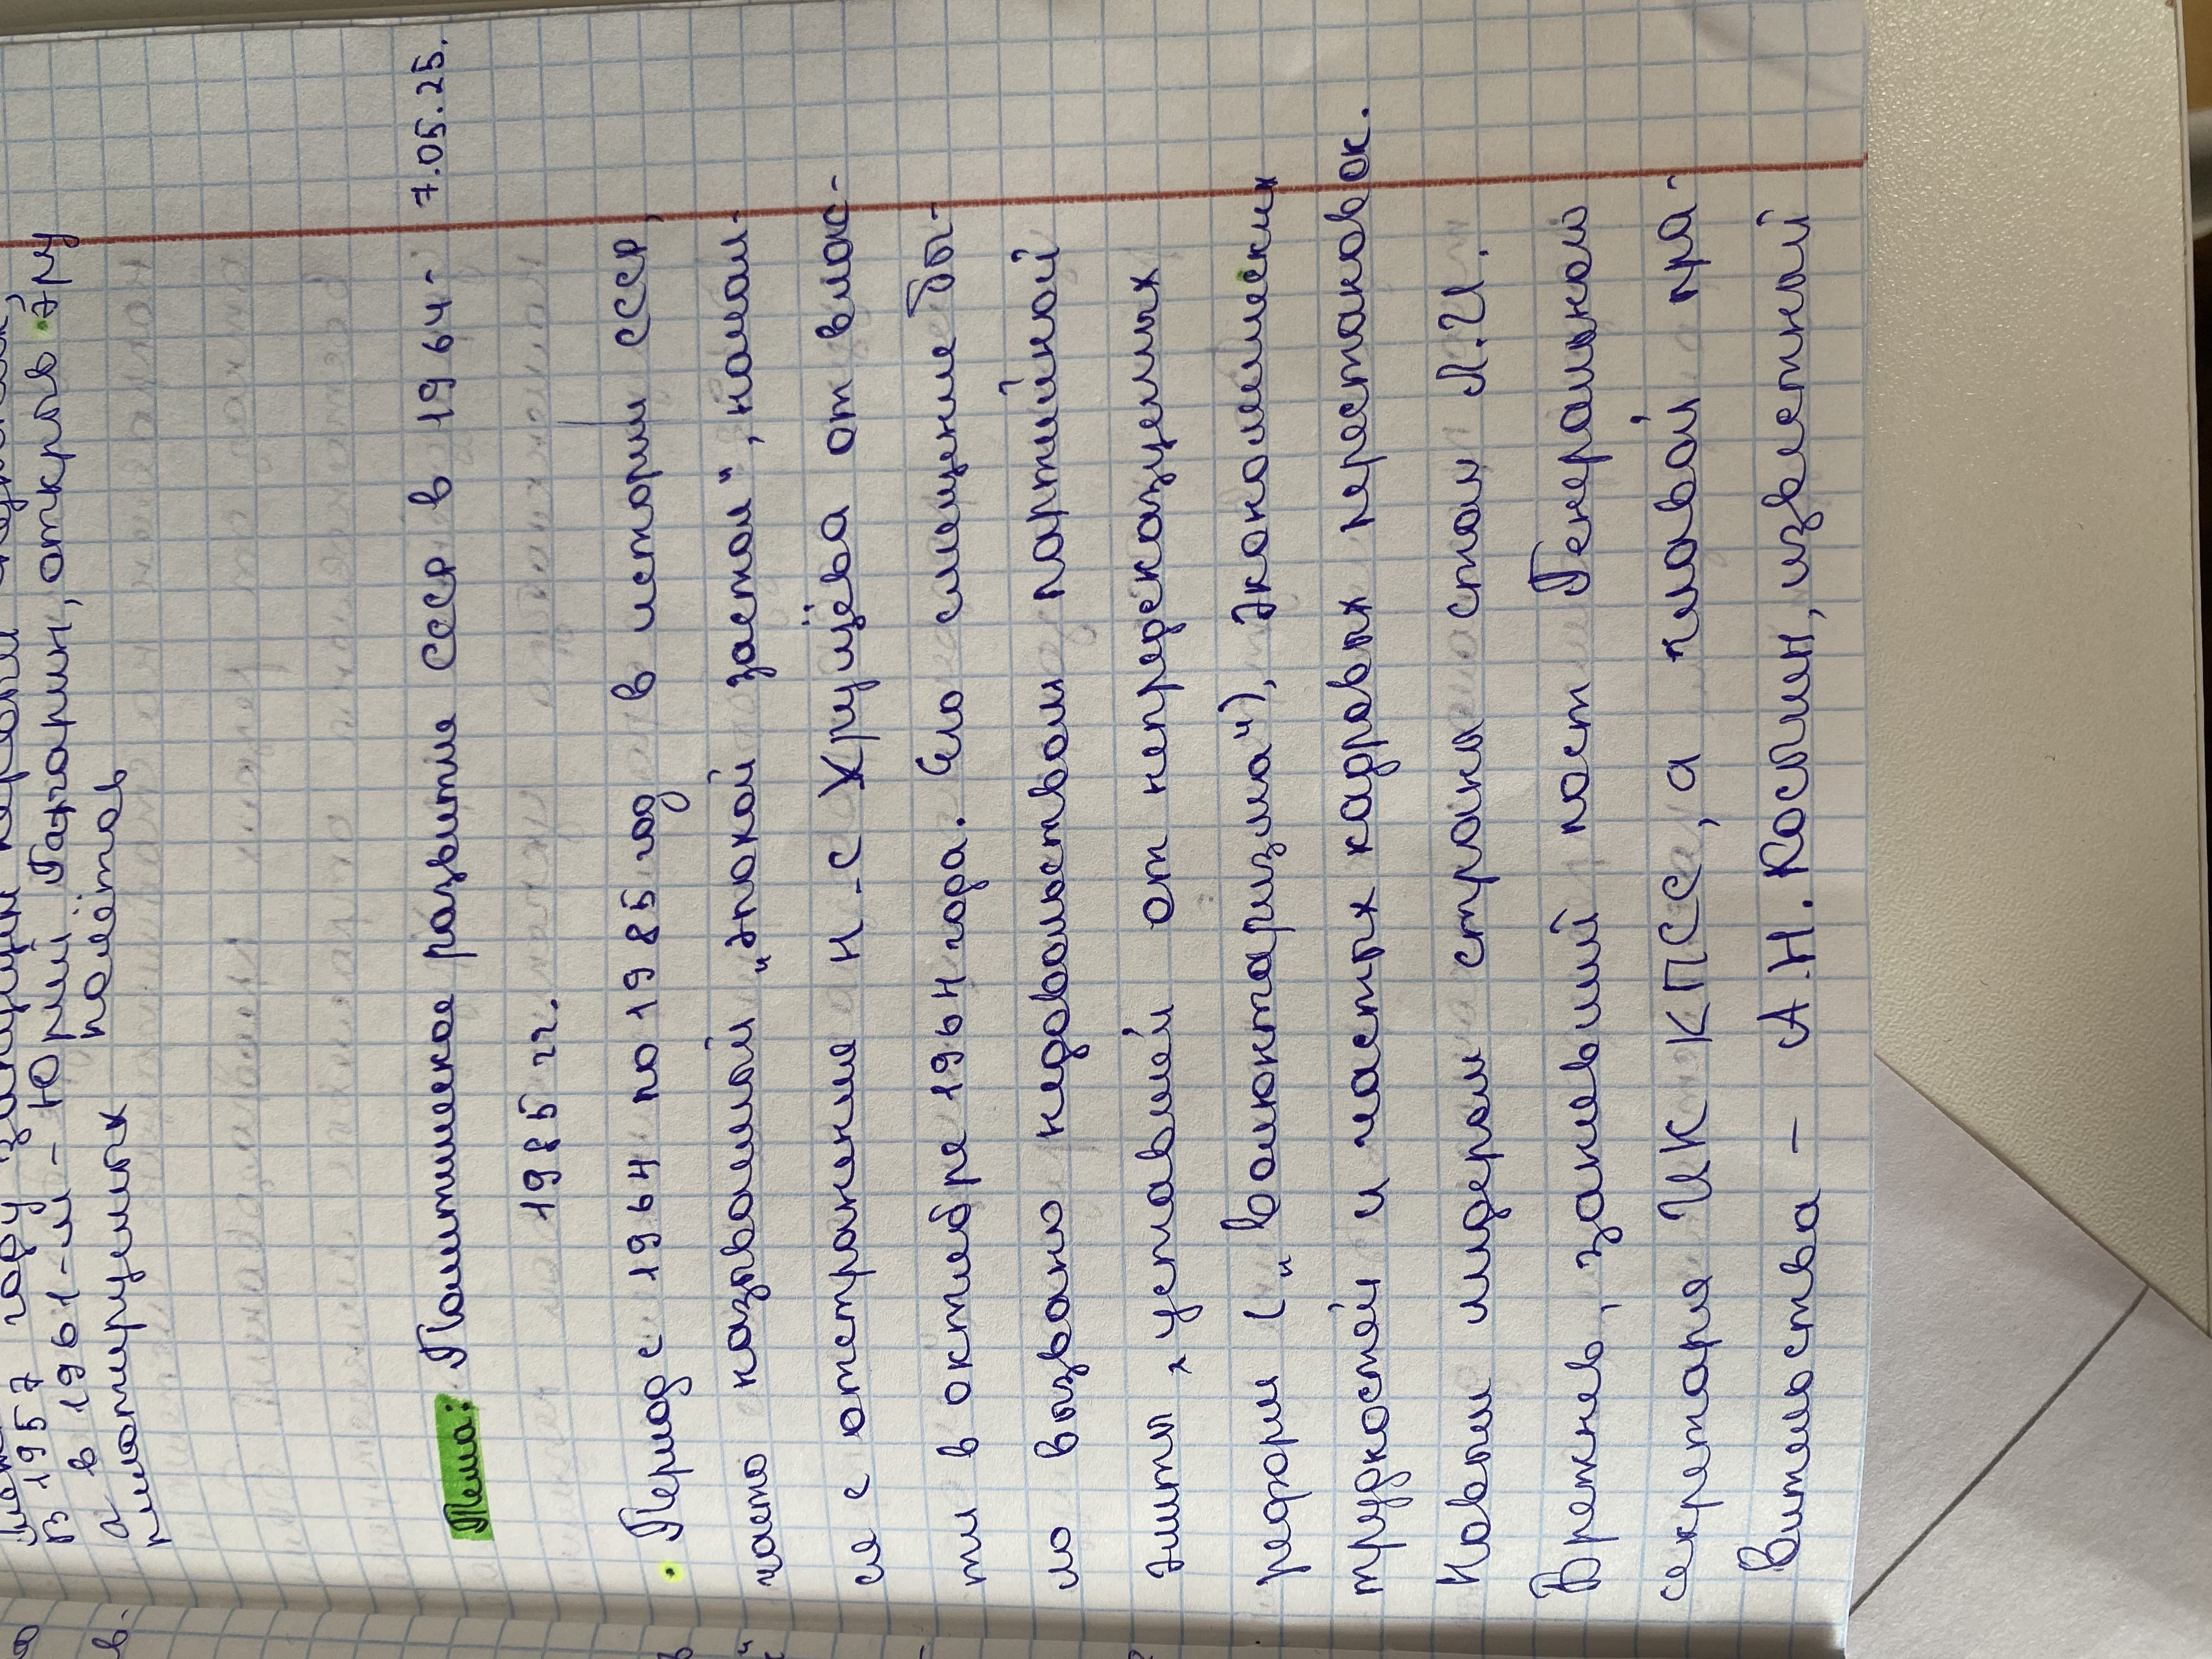 В 1957 году
а в 1961-м - Юрий Гагарин, открыв эру
пилотируемых полётов
7.05.25.
Тема: Политическое развитие СССР в 1964-
1985 гг.
• Период с 1964 по 1985 год в истории СССР,
часто называемый "эпохой застоя", начал-
ся с отстранения Н.С Хрущёва от влас-
ти в октябре 1964 года. Его смещение бы-
ло вызвано недовольством партийной
элиты, уставшей от непредсказуемых
реформ („волюнтаризма"), экономических
трудностей и частых кадровых перестановок.
Новым лидером страны стал Л.И.
Брежнев, занявший пост Генерального
секретаря ЦК КПСС, а главой пра-
вительства – А.Н. Косыгин, известный